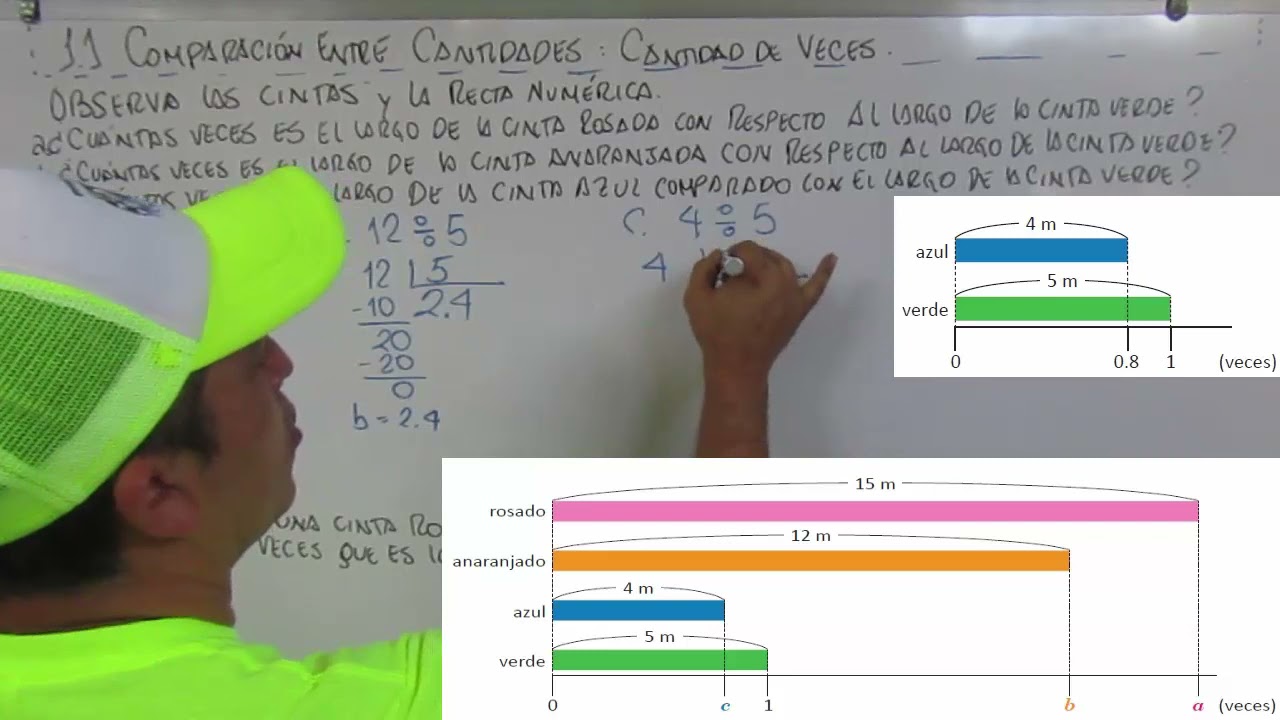 1.1 COMPARACIÓN ENTRE CANTIDADES: CANTIDAD DE VECES.
OBSERVA LAS CINTAS y LA RECTA NUMÉRICA.
a¿CUÁNTAS VECES ES EL LARGO DE LA CINTA ROSADA CON RESPECTO AL LARGO DE LA CINTA VERDE?
¿CUÁNTAS VECES ES EL LARGO DE LA CINTA ANARANJADA CON RESPECTO AL LARGO DE LA CINTA VERDE?
LARGO DE LA CINTA AZUL COMPARADO CON EL LARGO DE LA CINTA VERDE?
12 ÷ 5
12 5
-10 2.4
20
-20
0
b = 2.4
C. 4 ÷ 5
4
UNA CINTA
VECES QUE ES
4 m
azul
5 m
verde
0 0.8 1 (veces)
15 m
rosado
12 m
anaranjado
4 m
azul
5 m
verde
0 c 1 b a (veces)